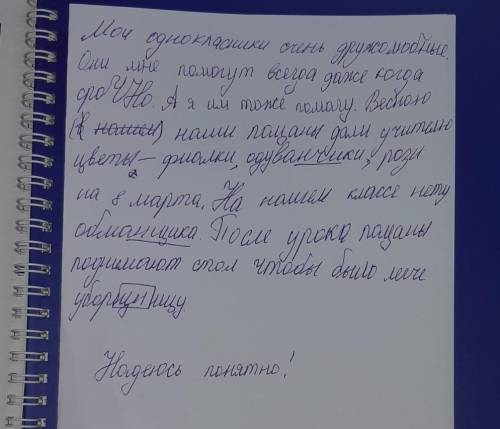 Мои однокласики очень дружолюбные.
Они мне помогут всегда даже когда
сроЧНо. А я им тоже помогу. Весною
(наши) наши пацаны дали учителю
цветы – фиалки, одуванчики, розы
на 8 марта. На нашем классе нету
обманщика. После урока пацаны
поднимают стол чтобы было легче
уборщницу.
Надеюсь понятно!